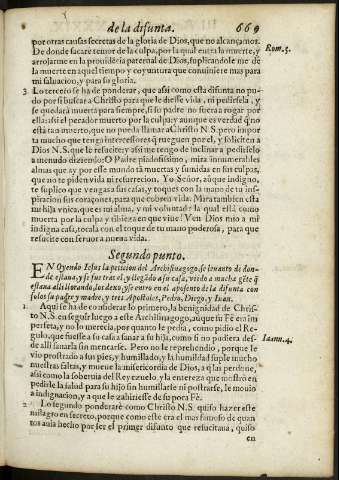 de la difunta. 669
por otras causas secretas de la gloria de Dios, que no alcançamos.
De donde sacarè temor de la culpa, por la qual entra la muerte, y Rom. 5.
arrojarme en la prouidécia paternal de Dios, suplicandole me dè
la muerte en aquel tiempo y coyuntura que conuiniere mas para
mi saluacion, y para su gloria.
3 Lo tercero se ha de ponderar, que assi como esta difunta no pu-
do por si buscar a Christo para que le diesse vida, ni pedirsela, y
se quedara muerta para siempre, si su padre no fuera a rogar por
ella: assi el pecador muerto por la culpa: y aunque es verdad q̃ no
està tã muerto, que no pueda llamar a Christo N.S. pero impor
ta mucho que tenga intercessores q̃ rueguen por el, y soliciten a
Dios N.S. que le resucite: y assi me tengo de inclinar a pedirselo
a menudo diziendo: O Padre piadosissimo, mira innumerables
almas que ay por esse mundo tã muertas y sumidas en sus culpas,
que no te piden vida ni resurreccion. Yo Señor, aũque indigno,
te suplico que vengas a sus casas, y toques con la mano de tu ins-
piracion sus coraçones, para que cobren vida. Mira tambien esta
mi hija vnica, que es mi alma, y mi voluntad: la qual està como
muerta por la culpa y tibieza en que viue! Ven Dios mio a mi
indigna casa, tocala con el toque de tu mano poderosa, para que
resucite con feruor a nueua vida.
Segundo punto.
EN Oyendo Iesus la peticion del Archisinagogo, se leuanto de don-
de estaua, y se fue tras el, y llegãdo a su casa, viẽdo a mucha gẽte q̃
estaua alli llorando, los dexo, y se entro en el aposento de la difunta con
solos su padre y madre, y tres Apostoles, Pedro, Diego, y Iuan.
1 Aqui se ha de considerar lo primero, la benignidad de Chris-
to N.S. en seguir luego a este Archisinagogo, aũque su Fè era im-
perfeta, y no lo merecia, por quanto le pedia, como pidio el Re-
gulo, que fuesse a su casa a sanar a su hija, como si no pudiera des- Ioann. 4.
de alli sanarla sin menearse. Pero no le reprehendio, porque le
vio prostrado a sus pies, y humillado, y la humildad suple mucho
nuestras faltas, y mueue la misericordia de Dios, a q̃ las perdone,
assi como la soberuia del Reyezuelo, y la entereza que mostrò en
pedirle la salud para su hijo sin humillarse ni postrarse, le mouio
a indignacion, y a que le zahiriesse de su poca Fè.
2 Lo segundo ponderarè como Christo N.S. quiso hazer este
milagro en secreto, porque como este era el mas famoso de quan-
tos auia hecho por ser el primer difunto que resucitaua, quiso
en